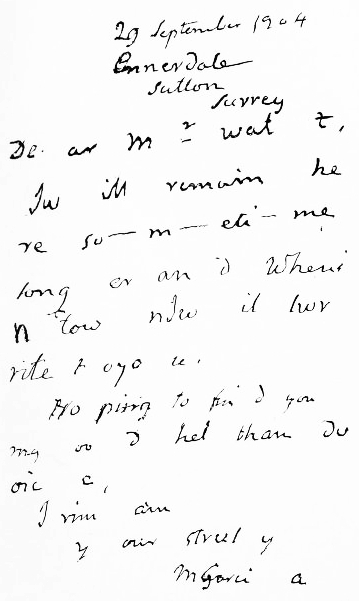 29 September 1904
Ennerdale
Sutton
Surrey
De ar Mr wat t,
I w ill remain he
re so—m—eti—me
long er an d When i
n tow n I w il l wr
rite t oyo u.
Ho ping to fin d you
in g oo d hel th an d v
oic e,
I rem ain
y our struel y
M Garci a